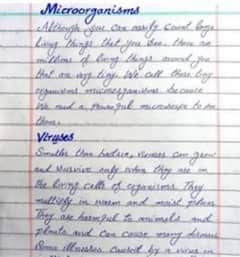 Microorganisms
Although you can easily count large
living things that you see. there are
millions of living things around you
that are very tiny. We call these tiny
organisms microorganisms because
We need a powerful microscope to see
them.
Viryses
Smaller than bacteria, viruses can grow
and survive only when they are in
the living cells of organisms. They
multiply in warm and moist places
They are harmful to animals and
plants and can cause many diseases
Some illnesses caused by a virus in